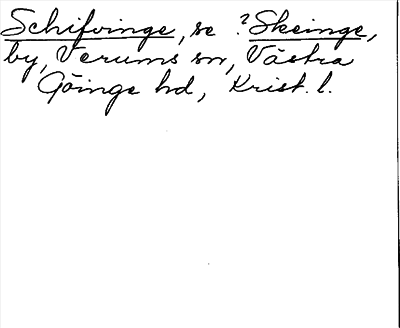 Schifvinge, se ? Skeinge,
by, Verums sn, Västra
Göinge hd, Krist. l.